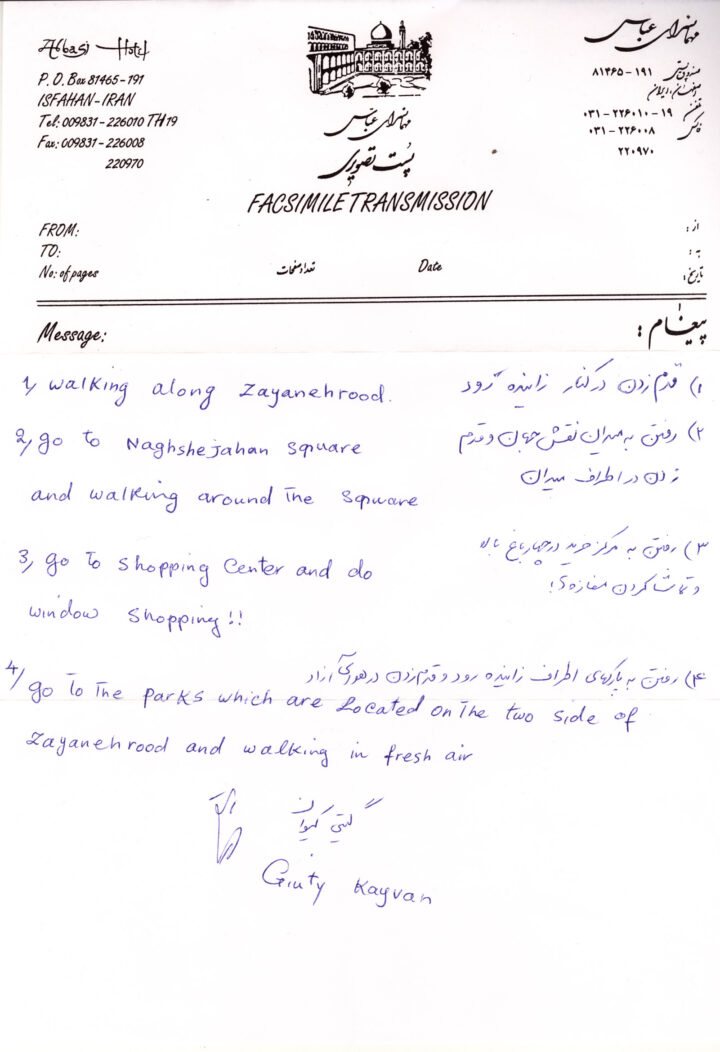 Abbasi Hotel
P. O. Box 81465-191
ISFAHAN-IRAN
Tel: 009831-226010 TH 19
Fax: 009831-226008
220970
مهمانسرای عباسی
پُست تصویری
FACSIMILE TRANSMISSION
مهمانسرای عباسی
صندوق پستی ۱۹۱ - ۸۱۴۶۵
اصفهان، ایران
تلفن ۱۹-۲۲۶۰۱۰-۰۳۱
فاکس ۲۲۶۰۰۸-۰۳۱
۲۲۰۹۷۰
FROM:
از:
TO:
به:
No: of pages
تعداد صفحات
Date
تاریخ:
Message:
پیغام:
1, walking along Zayanehrood.
۱) قدم زدن در کنار زاینده رود
2, go to Naghshejahan square
and walking around the square
۲) رفتن به میدان نقش جهان و قدم
زدن در اطراف میدان
3, go to shopping Center and do
window shopping!!
۳) رفتن به مرکز خرید در چهارباغ بالا
و تماشا کردن مغازه ی!
۴) رفتن به پارکهای اطراف زاینده رود و قدم زدن در هوای آزاد
4, go to the parks which are Located on the two side of
Zayanehrood and walking in fresh air
گیتی کیوان
Giuty Kayvan